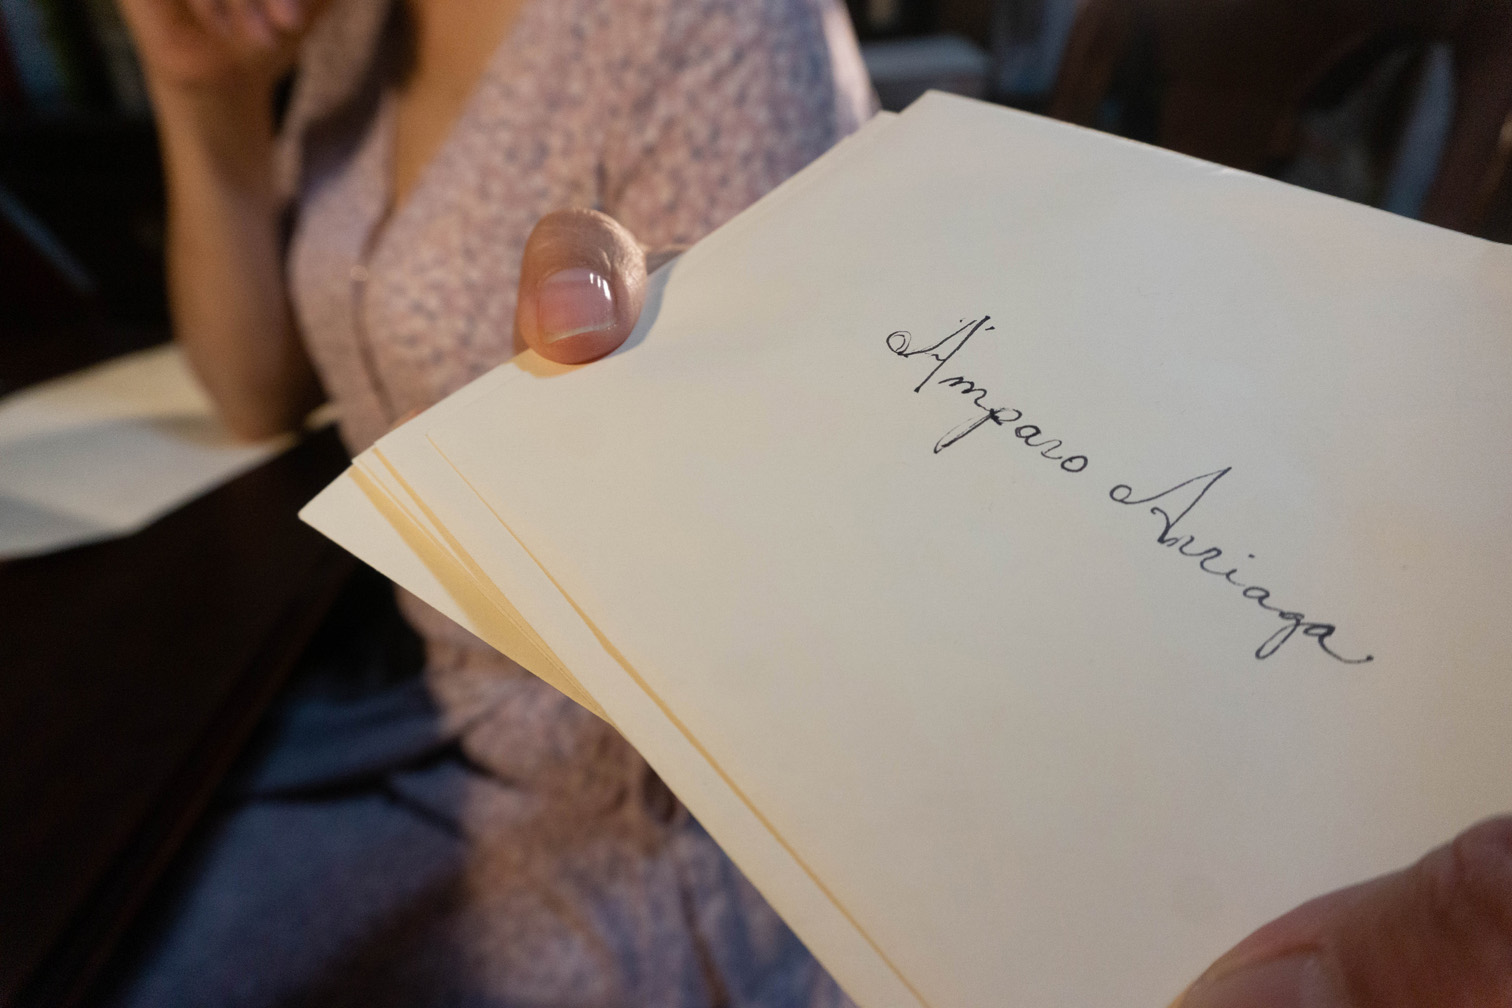 Amparo Arriaga